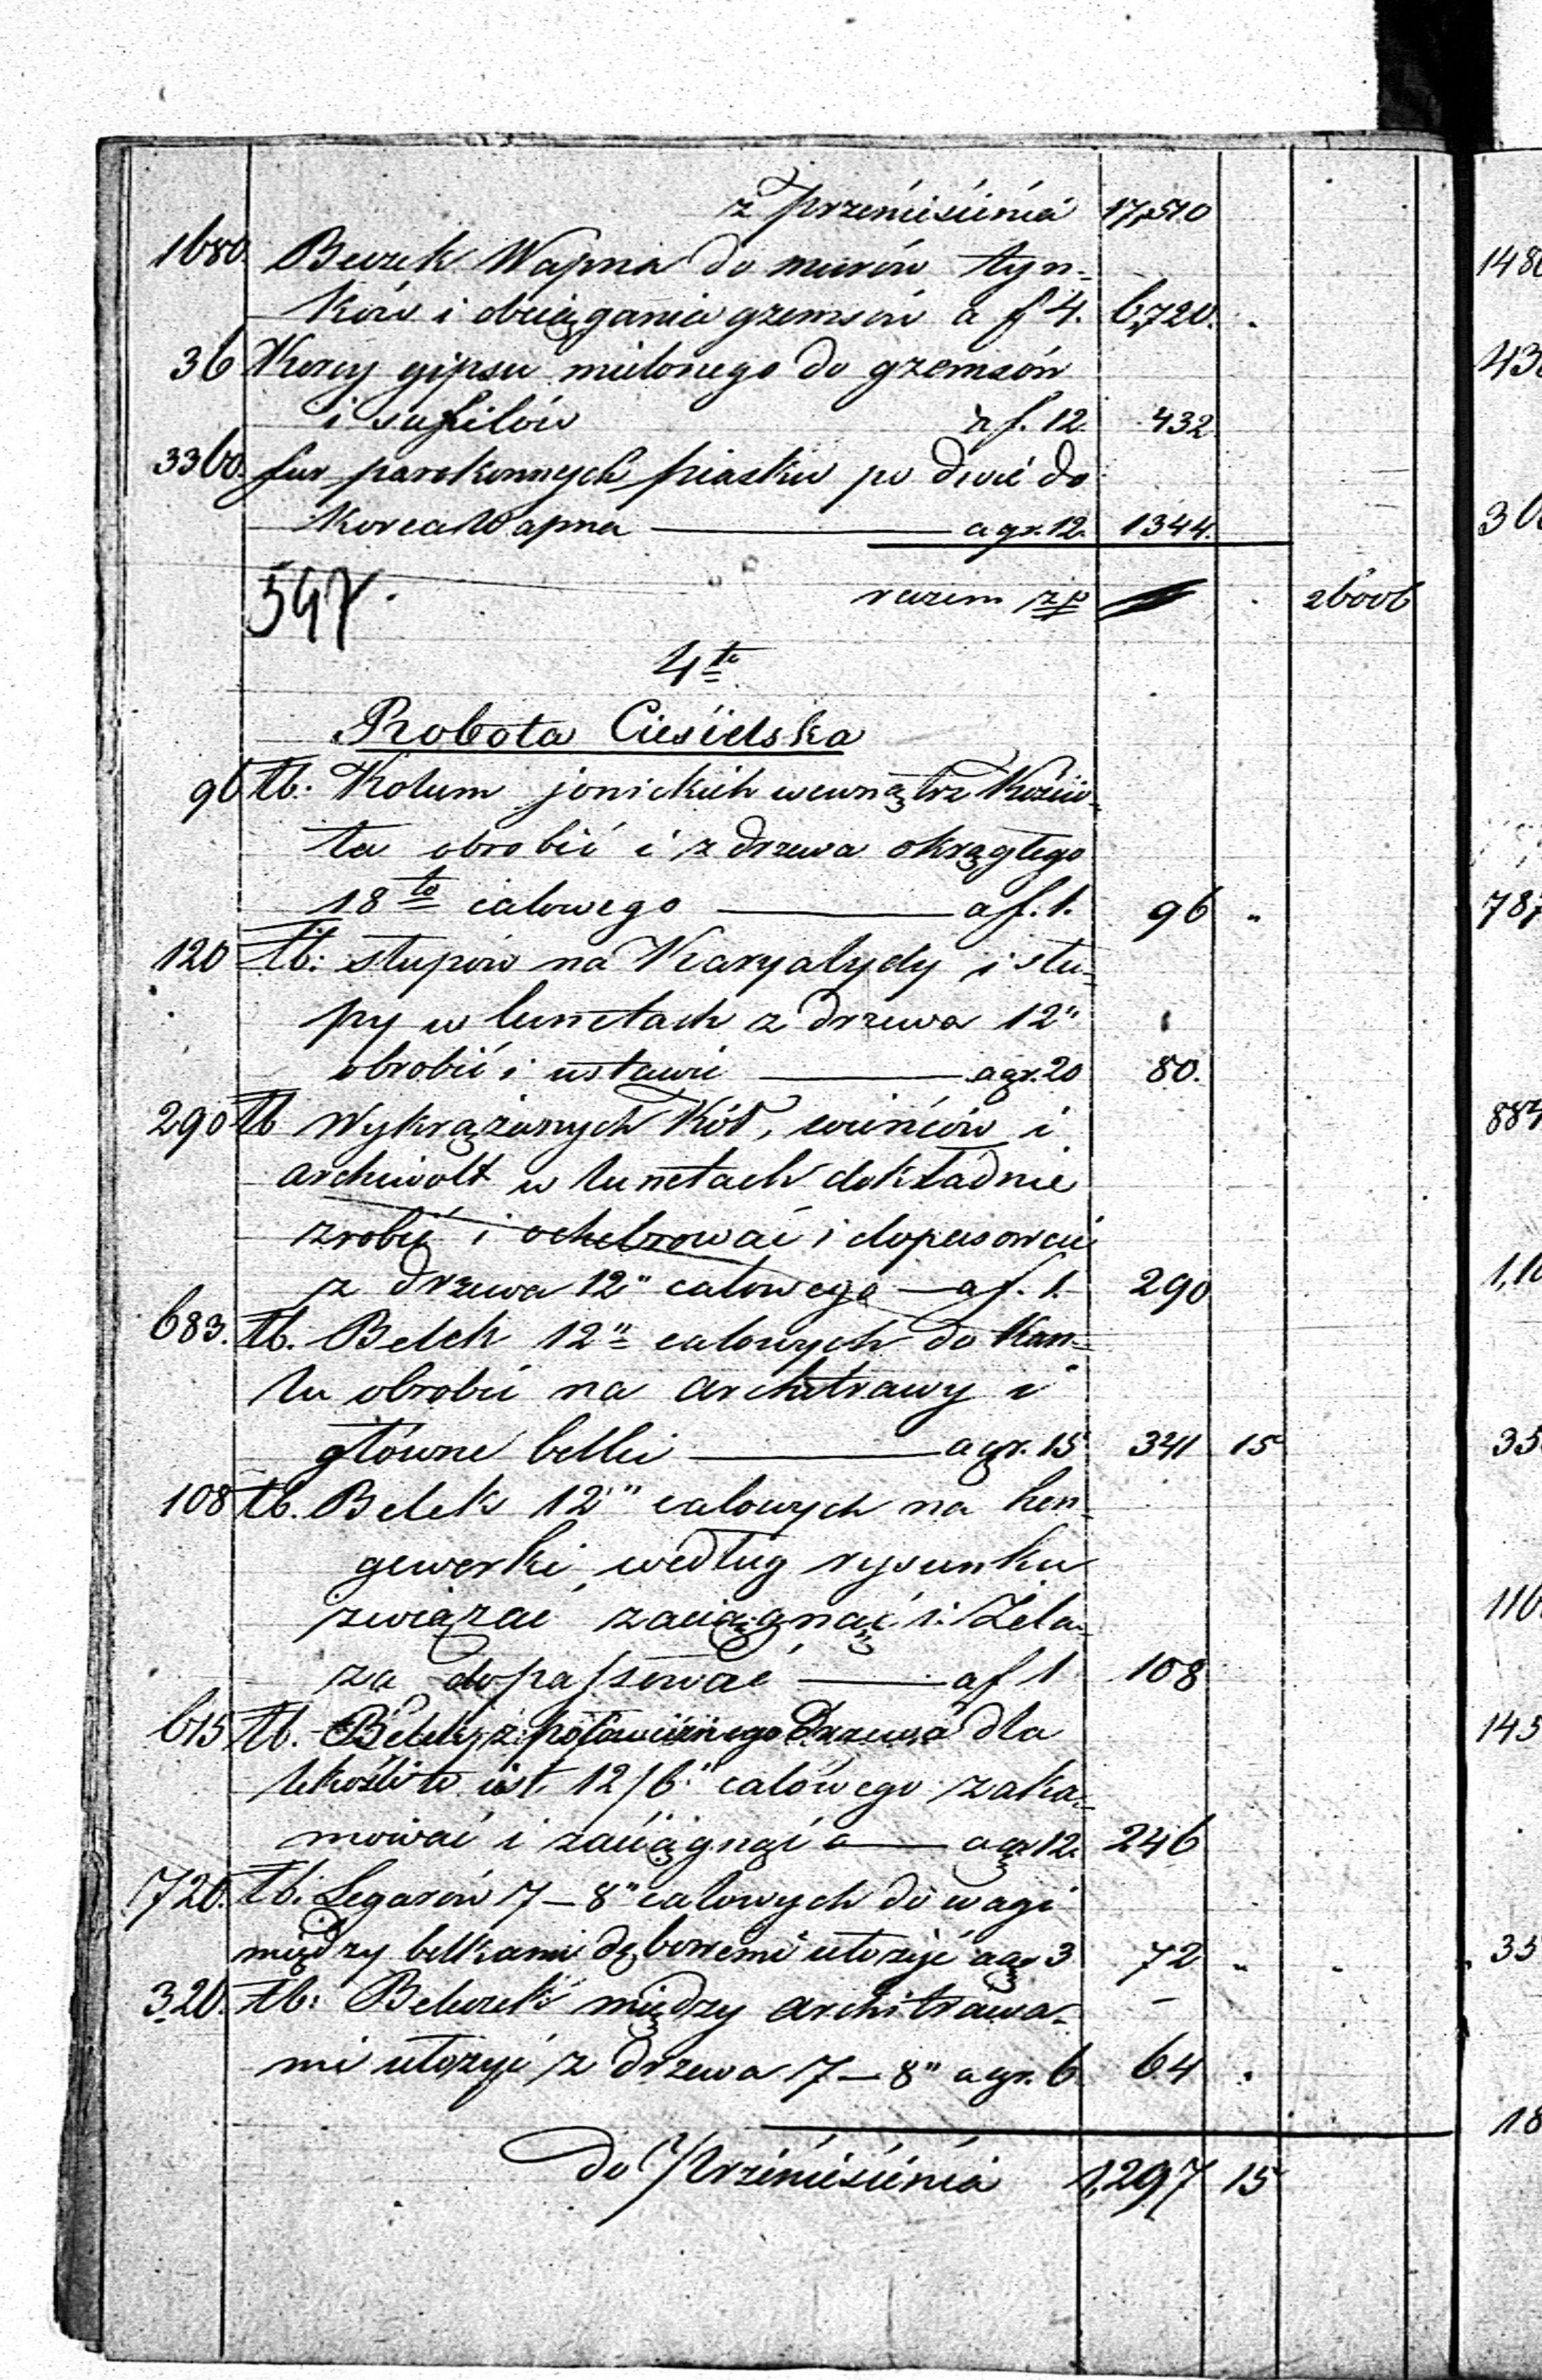 z przeniesienia 17,510
1680. Beczek Wapna do murów tyn-
ków i obciągania gzemsów a f 4. 6,720.
36 Korcy gipsu mielonego do gzemsów
i sufitów a f. 12. 432
3360. fur parokonnych piasku po dwie do
Korca Wapna — a gr. 12. 1344.
razem zp 26006
547.
4to
Robota Ciesielska
96 łb. Kolumn jonickich wewnątrz Kościo-
ła obrobić i z drzewa okrągłego
18to calowego — a f. 1. 96 "
120 łb: słupów na Karyatydy i słu-
py w lunetach z drzewa 12"
obrobić i ustawić — a gr. 20 80.
290 łb Wykrążanych Kół, wieńców i
archiwolt w lunetach dokładnie
zrobić i i dopasować
z drzewa 12" calowego — a f. 1. 290
683. łb. Belek 12" calowych do Kan-
tu obrobić na architrawy i
główne belki — a gr. 15 341 15
108 łb. Belek 12" calowych na hen-
gewerki według rysunku
związać zaciągnąć i Żela-
za dopasować — a f 1 108
615 łb. Belek z połowicznego Drzewa dla
lekkości to jest 12/6" calowego zaka-
mować i zaciągnąć a — a gr 12. 246
720. łb: Legarów 7–8" calowych do wagi
między belkami dębowemi ułożyć a gr 3 72 "
320. łb: Beleczek między architrawa-
mi ułożyć z drzewa 7–8" a gr. 6 64
do Przeniesienia 1,297 15